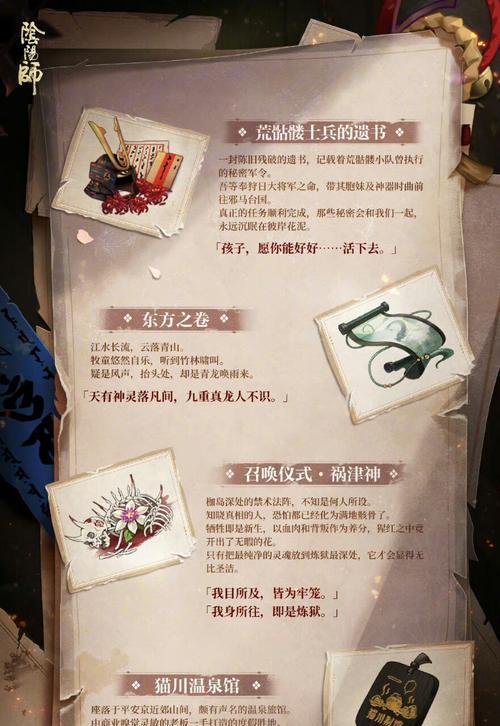 陰陽師
荒骷髅士兵的遗书
一封陈旧残破的遗书，记载着荒骷髅小队曾执行
的秘密军令。
吾等奉持日大将军之命，带其胞妹及神器时曲前
往邪马台国。
真正的任务顺利完成，那些秘密会和我们一起，
永远沉眠在彼岸花泥。
「孩子，愿你能好好……活下去。」
东方之卷
江水长流，云落青山。
牧童悠然自乐，听到竹林啸叫。
疑是风声，抬头处，却是青龙唤雨来。
「天有神灵落凡间，九重真龙人不识。」
召唤仪式·祸津神
枷岛深处的禁术法阵，不知是何人所设。
知晓真相的人，恐怕都已经化为满地骸骨了。
牺牲即是新生，以血肉和背叛作为养分，猩红之中竟
开出了无暇的花。
只有把最纯净的灵魂放到炼狱最深处，它才会显得无
比圣洁。
「我目所及，皆为牢笼。」
「我身所往，即是炼狱。」
猫川温泉馆
座落于平安京近郊山间，颇有声名的温泉旅馆。
由商业嗅觉灵敏的老板一手打造的度假胜地。